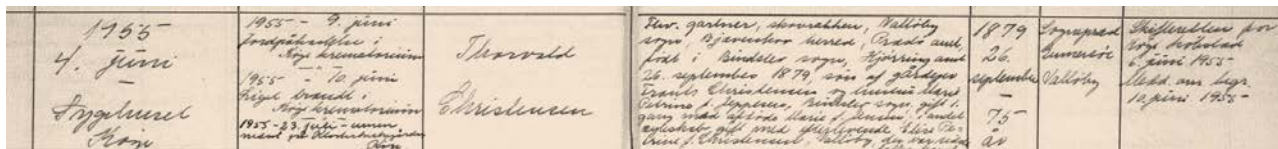 1955
4. juni
Sygehuset
Køge
1955 - 9. juni
Jordpåkastelse i
Køge krematorium
1955 - 10. juni
Liget brændt i
Køge krematorium
1955 - 23. juli - urnen
nedsat på
Køge
Thorvald
Christensen
Fhv. gartner, skovrakken, Valløby
sogn, Bjæverskov herred, Præstø amt,
født i Bindslev sogn, Hjørring amt
26. september 1879, søn af gårdejer
Frants Christensen og hustru Marie
Petrine f. Jeppesen, Bindslev sogn, gift 1.
gang med afdøde Marie f. Jensen, i andet
ægteskab gift med efterlevende Elise Pe-
trine f. Christensen, Valløby, der var født
1879
26.
september
-
75
år
Sognepræst
Valløby
Skifteretten for
Køge købstad
6. juni 1955
Medd. om begr.
10. juni 1955